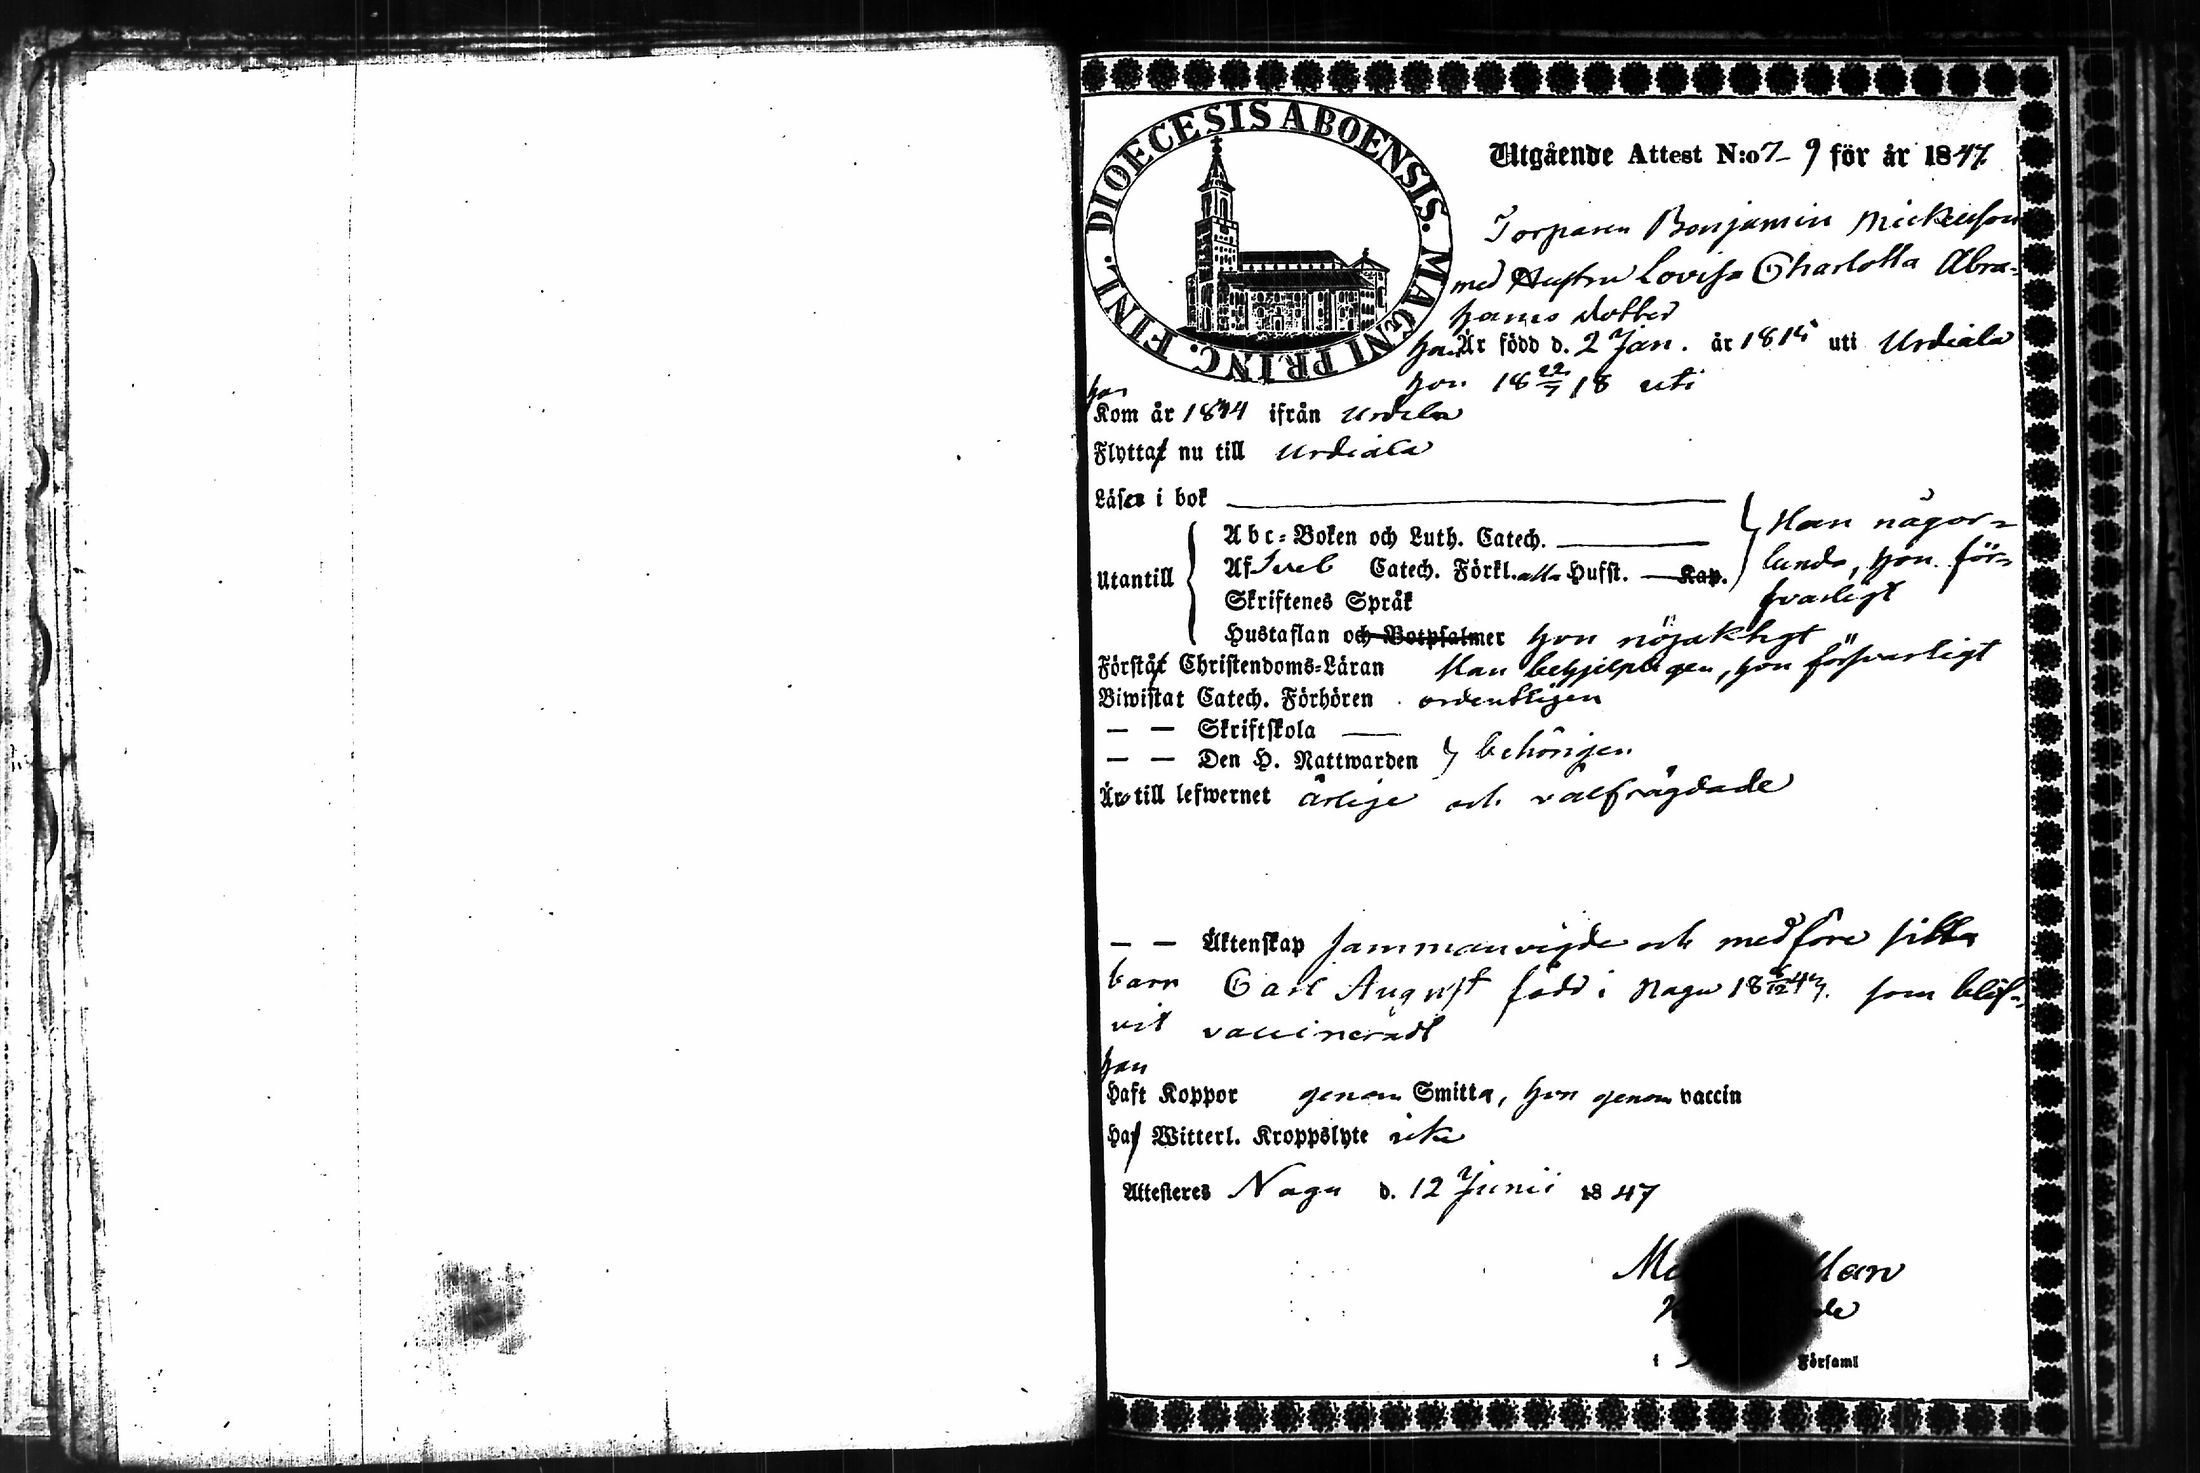 DIOECESIS ABOENSIS. MAGNI PRINC. FINL.
Utgående Attest N:o 7-9 för år 1847.
Torparen Benjamin Mickelsson
med Hustru Lovisa Charlotta Abra-
hams dotter
han Är född d. 2 Jan. år 1815 uti Urdiala
hon 18 22/7 18 uti
han
Kom år 1844 ifrån Urdiala
Flyttat nu till Urdiala
Läser i bok
Utantill
Abc-Boken och Luth. Catech.
Af Catech. Förkl. alla Husst. Kap.
Skriftenes Språk
Han någor-
lunda, hon för-
svarligt
Hustaflan och Botpsalmer hon nöjaktigt
Förstå Christendoms-Läran Han behjelpligen, hon försvarligt
Biwistat Catech. Förhören ordentligen
— — Skriftskola —
— — Den H. Nattwarden behörigen
Äro till lefwernet ärlige och välfrägdade
— — Äktenskap sammanvigde och medföre sitt
barn Carl August född i Nagu 18 6/12 som blif-
vit vaccineradt
han
Haft Koppor genom Smitta, hon genom vaccin
Haf Witterl. Kroppslyte icke
Attesteres Nagu d. 12 Junii 1847
i Församl